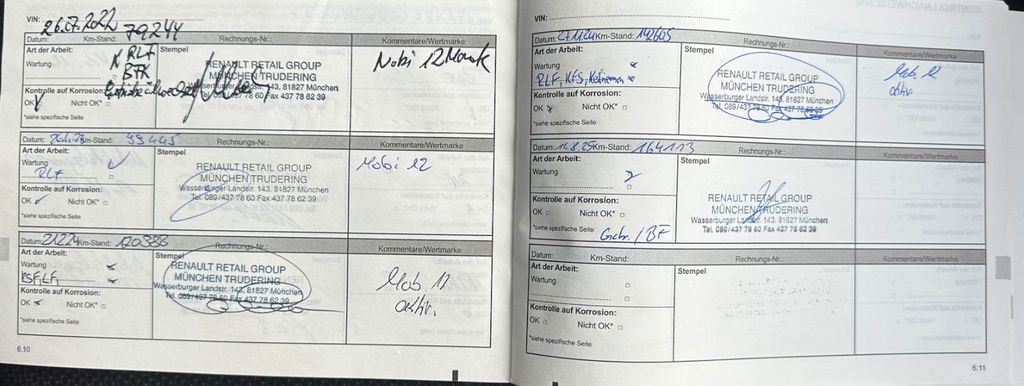 VIN:
26.07.2022 79244
Datum: Km-Stand: Rechnungs-Nr.: Kommentare/Wertmarke
Art der Arbeit: Stempel
RLF
Wartung
Mobi 12 Monate
RENAULT RETAIL GROUP
MÜNCHEN TRUDERING
Wasserburger Landstr. 143, 81827 München
Kontrolle auf Korrosion:
Tel. 089/437 78 60 Fax 437 78 62 39
OK Nicht OK*
*siehe spezifische Seite
Datum: Km-Stand: 99445 Rechnungs-Nr.: Kommentare/Wertmarke
Art der Arbeit: Stempel
Wartung
RLF
Mobi 12
RENAULT RETAIL GROUP
MÜNCHEN TRUDERING
Wasserburger Landstr. 143, 81827 München
Tel. 089/437 78 60 Fax 437 78 62 39
Kontrolle auf Korrosion:
OK Nicht OK*
*siehe spezifische Seite
Datum: Km-Stand: 120386 Rechnungs-Nr.: Kommentare/Wertmarke
Art der Arbeit: Stempel
Wartung
RENAULT RETAIL GROUP
MÜNCHEN TRUDERING
Wasserburger Landstr. 143, 81827 München
Tel. 089/437 78 60 Fax 437 78 62 39
Mob. 12
aktiv.
Kontrolle auf Korrosion:
OK Nicht OK*
*siehe spezifische Seite
6.10
VIN:
Datum: 27.11.24 Km-Stand: 142605 Rechnungs-Nr.: Kommentare/Wertmarke
Art der Arbeit: Stempel
Wartung
RLF, KFS,
RENAULT RETAIL GROUP
MÜNCHEN TRUDERING
Wasserburger Landstr. 143, 81827 München
Tel. 089/437 78 60 Fax 437 78 62 39
Mob. 12
aktiv.
Kontrolle auf Korrosion:
OK Nicht OK*
*siehe spezifische Seite
Datum: Km-Stand: 164113 Rechnungs-Nr.: Kommentare/Wertmarke
Art der Arbeit: Stempel
Wartung
RENAULT RETAIL GROUP
MÜNCHEN TRUDERING
Wasserburger Landstr. 143, 81827 München
Tel. 089/437 78 60 Fax 437 78 62 39
Kontrolle auf Korrosion:
OK Nicht OK*
*siehe spezifische Seite
Datum: Km-Stand: Rechnungs-Nr.: Kommentare/Wertmarke
Art der Arbeit: Stempel
Wartung
Kontrolle auf Korrosion:
OK Nicht OK*
*siehe spezifische Seite
6.11